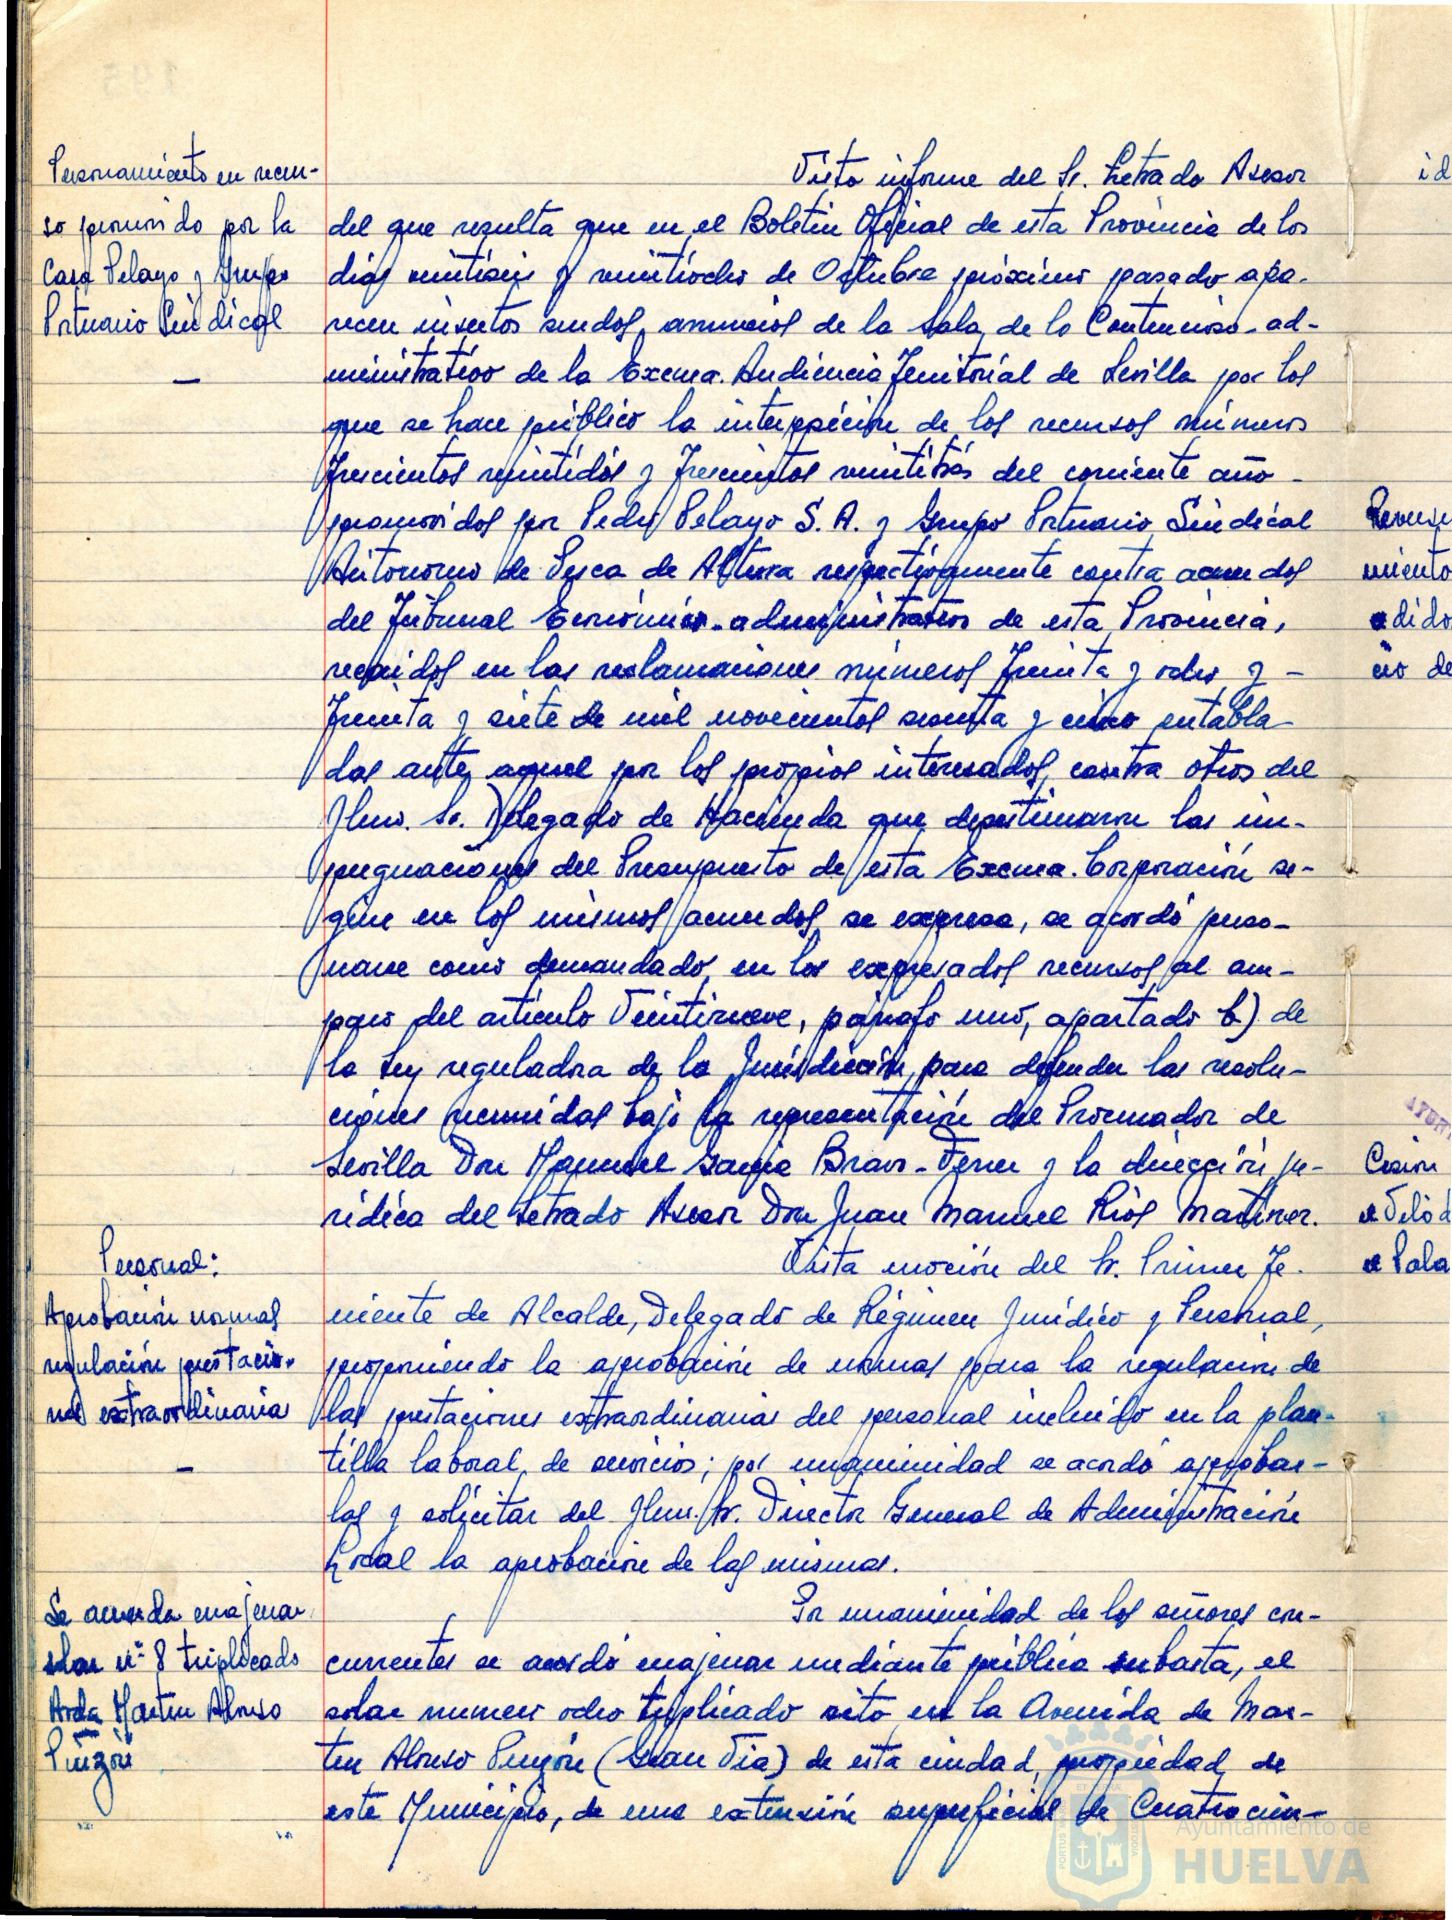 Personamiento en recur-
so promovido por la
Casa Pelayo y Grupo
Portuario Sindical
Visto informe del Sr. Letrado Asesor
del que resulta que en el Boletin Oficial de esta Provincia de los
dias veintiseis y veintiocho de Octubre próximo pasado apa-
recen insertos sendos anuncios de la Sala de lo Contencioso-ad-
ministrativo de la Excma. Audiencia Territorial de Sevilla por los
que se hace público la interposición de los recursos números
trescientos veintidós y trescientos veintitrés del corriente año
promovidos por Pedro Pelayo S. A. y Grupo Portuario Sindical
Autonomo de Pesca de Altura respectivamente contra acuerdos
del Tribunal Económico-administrativo de esta Provincia,
recaidos en las reclamaciones números treinta y ocho y -
treinta y siete de mil novecientos sesenta y cinco entabla-
das ante aquel por los propios interesados, contra otros del
Ilmo. Sr. Delegado de Hacienda que desestimaron las im-
pugnaciones del Presupuesto de esta Excma. Corporación se-
gún en los mismos acuerdos se expresa, se acordó perso-
narse como demandado en los expresados recursos al am-
paro del artículo Veintinueve, párrafo uno, apartado b) de
la Ley reguladora de la Jurisdicción, para defender las resolu-
ciones recurridas bajo la representación del Procurador de
Sevilla Don Manuel Garcia Bravo-Ferrer y la dirección ju-
ridica del Letrado Asesor Don Juan Manuel Ríos Martinez.
Personal:
Aprobación normas
regulación prestacio-
nes extraordinarias
Vista moción del Sr. Primer Te-
niente de Alcalde, Delegado de Régimen Jurídico y Personal,
proponiendo la aprobación de normas para la regulación de
las prestaciones extraordinarias del personal incluido en la plan-
tilla laboral de servicios; por unanimidad se acordó aprobar-
las y solicitar del Ilmo. Sr. Director General de Administración
Local la aprobación de las mismas.
Se acuerda enajenar
solar nº 8 triplicado
Avda Martin Alonso
Pinzón
Por unanimidad de los señores con-
currentes se acordó enajenar mediante pública subasta, el
solar numero ocho triplicado sito en la Avenida de Mar-
tin Alonso Pinzón (Gran Via) de esta ciudad, propiedad de
este Municipio, de una extensión superficial de Cuatrocien-
id
miento
dido
de
Cesion
Ayuntamiento de
HUELVA